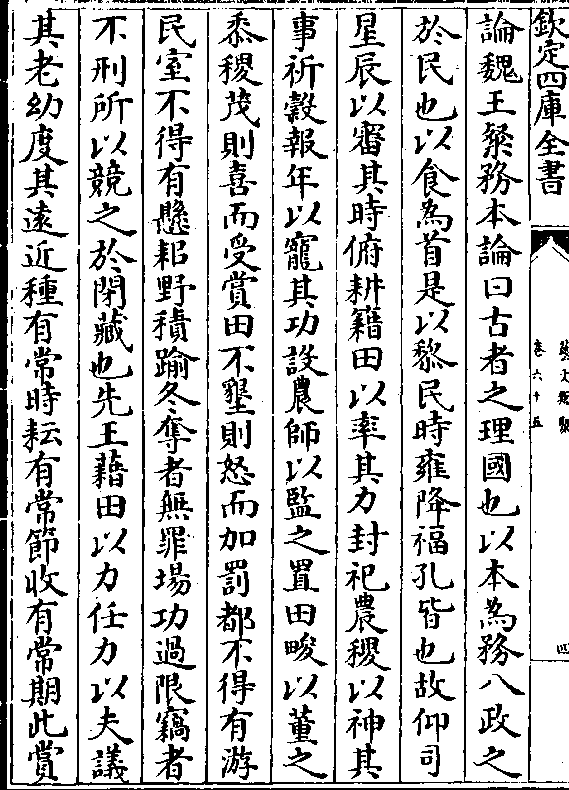 欽定四庫全書
藝文類聚
卷六十五
四
論魏王粲務本論曰古者之理國也以本為務八政之
於民也以食為首是以黎民時雍降福孔皆也故仰司
星辰以審其時俯耕籍田以率其力封祀農稷以神其
事祈穀報年以寵其功設農師以監之置田畯以董之
黍稷茂則喜而受賞田不墾則怒而加罰都不得有游
民室不得有懸耜野積踰冬奪者無罪場功過限竊者
不刑所以競之於閉藏也先王藉田以力任力以夫議
其老幼度其遠近種有常時耘有常節收有常期此賞